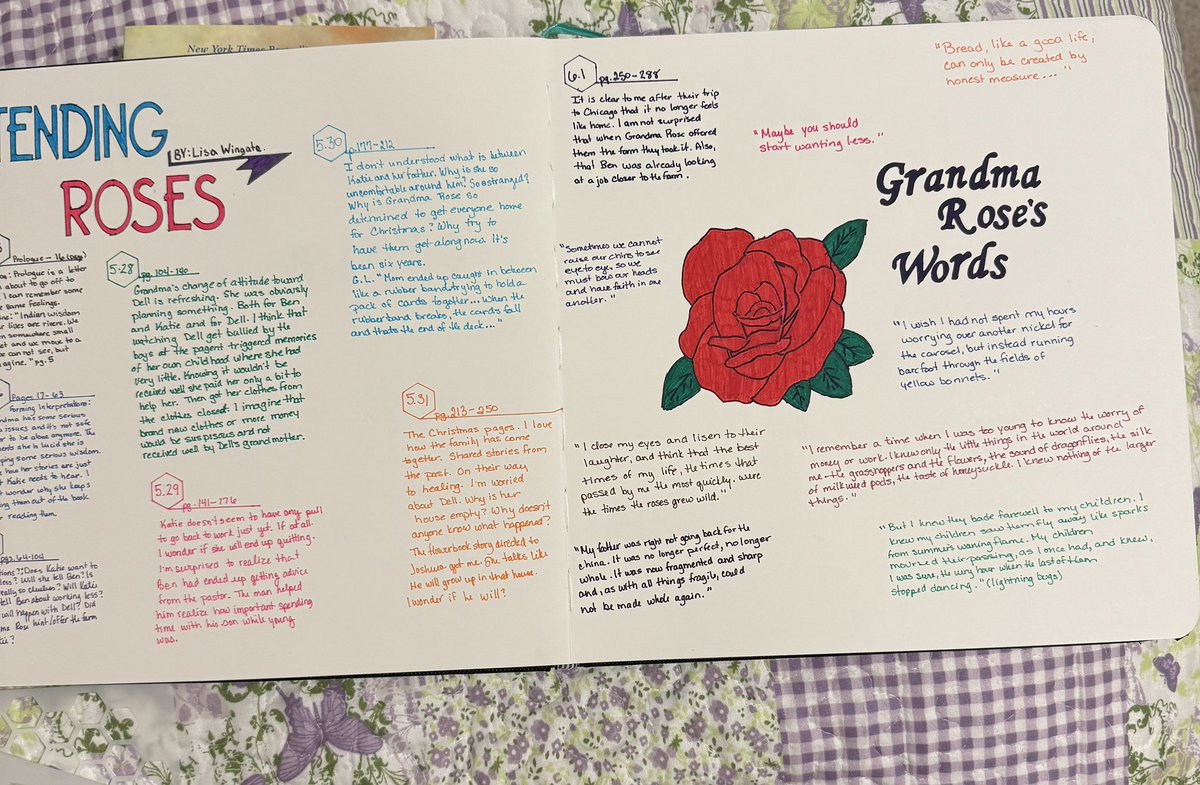 New York Times
TENDING
BY: Lisa Wingate.
ROSES
Prologue - 16 (pgs)
: Prologue is a letter
about to go off to
I can remember some
same feelings.
: "Indian wisdom
lives are rivers. We
somewhere small
and we move to a
we cannot see, but
imagine." pg. 5
Pages 17-63
Forming Interpretations:
has some serious
issues and it's not safe
to be alone anymore. The
she is lucid she is
some serious wisdom.
how her stories are just
Katie needs to hear. I
wonder why she keeps
them out of the book
reading them.
pgs 64-104
Does Katie want to
less? Will she tell Ben? Is
really so clueless? Will Katie
tell Ben about working less?
will happen with Dell? Did
Rose hint/offer the farm
5.28
pg. 104-140
Grandma's change of attitude toward
Dell is refreshing. She was obviously
planning something. Both for Ben
and Katie and for Dell. I think that
watching Dell get bullied by the
boys at the pagent triggered memories
of her own childhood where she had
very little. Knowing it wouldn't be
received well she paid her only a bit to
help her. Then got her clothes from
the clothes closet. I imagine that
brand new clothes or more money
would be suspicous and not
received well by Dell's grandmother.
5.29
pg. 141-176
Katie doesn't seem to have any pull
to go back to work just yet. If at all.
I wonder if she will end up quitting.
I'm surprised to realize that
Ben had ended up getting advice
from the pastor. The man helped
him realize how important spending
time with his son while young
was.
5.30
p.177-212
I don't understood what is between
Katie and her father. Why is she so
uncomfortable around him? So estranged?
Why is Grandma Rose so
determined to get everyone home
for Christmas? Why try to
have them get along now. It's
been six years.
G.L. "Mom ended up caught in between
like a rubber band trying to hold a
pack of cards together... When the
rubber band breaks, the cards fall
and thats the end of the deck..."
5.31
pg. 213-250
The Christmas pages. I love
how the family has come
together. Shared stories from
the past. On their way
to healing. I'm worried
about Dell. Why is her
house empty? Why doesn't
anyone know what happened?
The flowerbook story directed to
Joshua got me. She talks like
He will grow up in that house.
I wonder if he will?
6.1
pg. 250-288
It is clear to me after their trip
to Chicago that it no longer feels
like home. I am not surprised
that when Grandma Rose offered
them the farm they took it. Also,
that Ben was already looking
at a job closer to the farm.
"Bread, like a good life,
can only be created by
honest measure..."
"Maybe you should
start wanting less."
Grandma
Rose's
Words
"Sometimes we cannot
raise our chins to see
eye to eye, so we
must bow our heads
and have faith in one
another."
"I wish I had not spent my hours
worrying over another nickel for
the carosel, but instead running
barefoot through the fields of
yellow bonnets."
"I close my eyes and listen to their
laughter, and think that the best
times of my life, the times that
passed by me the most quickly. were
the times the roses grew wild."
"I remember a time when I was too young to know the worry of
money or work. I knew only the little things in the world around
me - the grasshoppers and the flowers, the sound of dragonflies, the silk
of milkweed pods, the taste of honeysuckle. I knew nothing of the larger
things."
"My father was right not going back for the
china. It was no longer perfect, no longer
whole. It was now fragmented and sharp
and, as with all things fragile, could
not be made whole again."
"But I knew they bade farewell to my children. I
knew my children saw them fly away like sparks
from summer's waning flame. My children
mourned their passing, as I once had, and knew,
I was sure, the very hour when the last of them
stopped dancing." (lightning bugs)